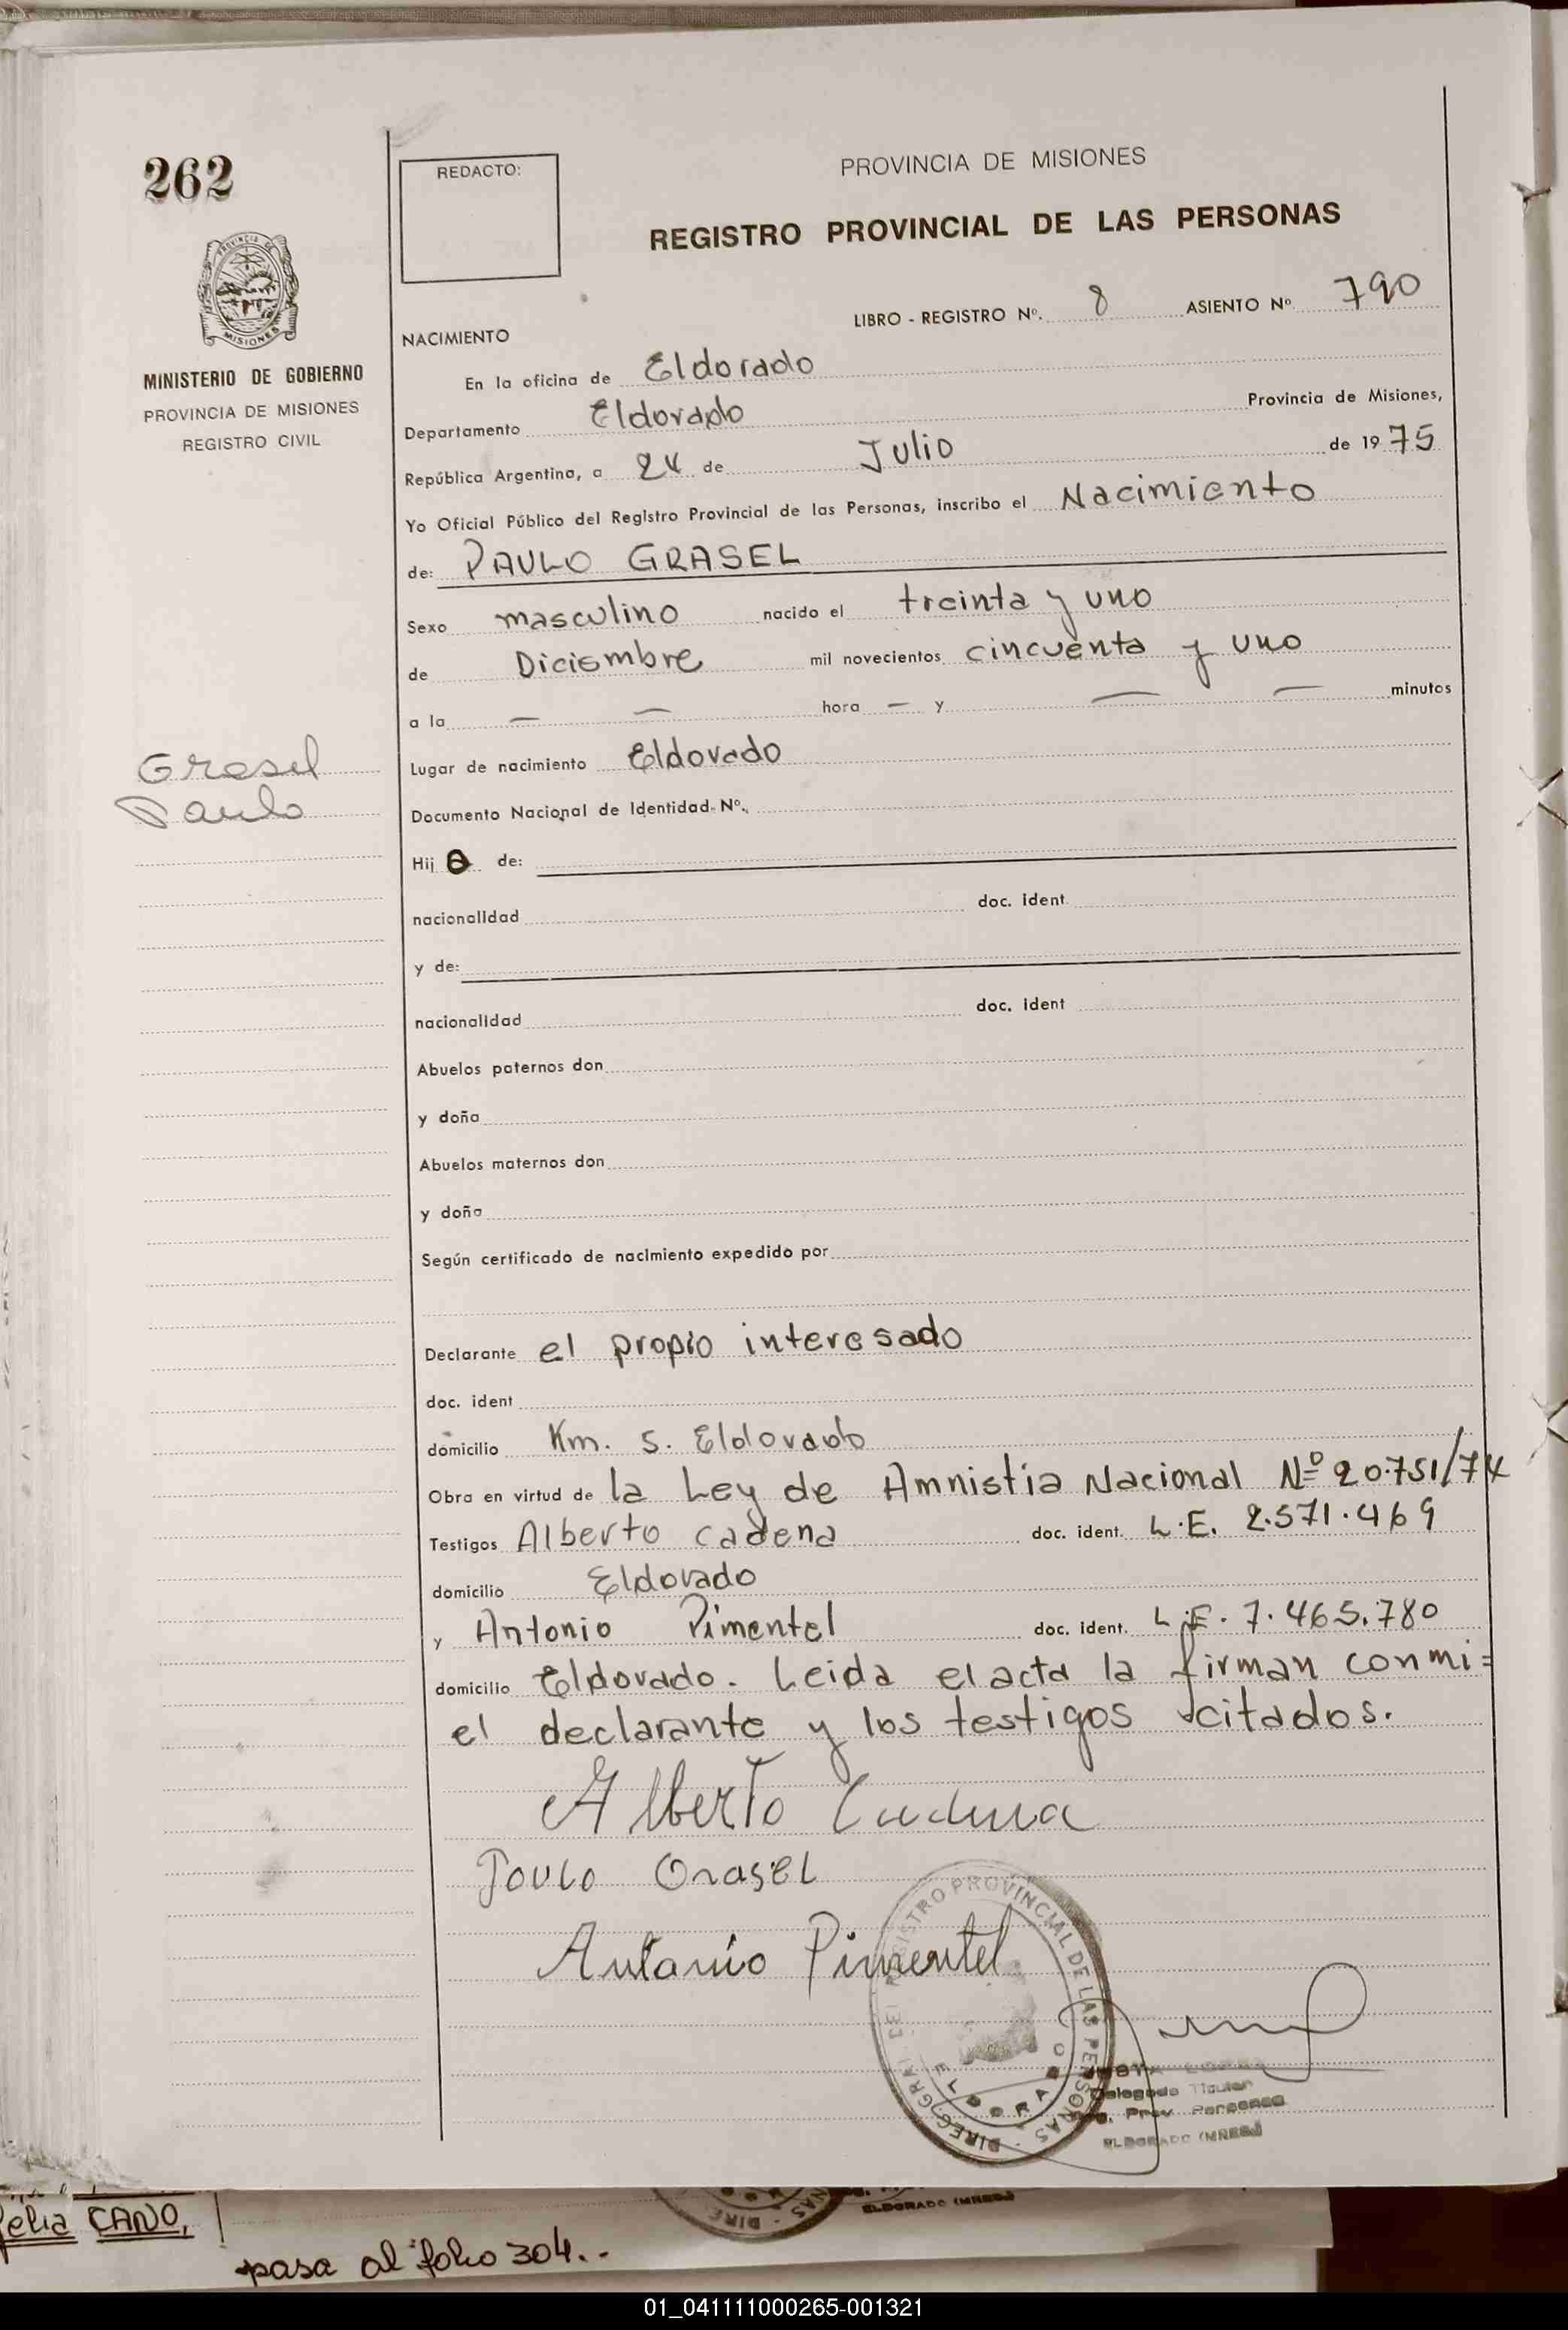 262
REDACTO:
PROVINCIA DE MISIONES
REGISTRO PROVINCIAL DE LAS PERSONAS
PROVINCIA DE
MISIONES
MINISTERIO DE GOBIERNO
PROVINCIA DE MISIONES
REGISTRO CIVIL
LIBRO - REGISTRO Nº. 8 ASIENTO Nº 790
NACIMIENTO
En la oficina de Eldorado
Departamento Eldorado Provincia de Misiones,
República Argentina, a 24 de Julio de 1975
Yo Oficial Público del Registro Provincial de las Personas, inscribo el Nacimiento
de: PAULO GRASEL
Sexo masculino nacido el treinta y uno
de Diciembre mil novecientos cincuenta y uno
a la — — hora — y — — minutos
Grasel
Paulo
Lugar de nacimiento Eldorado
Documento Nacional de Identidad Nº.
Hij o de:
nacionalidad doc. ident
y de:
nacionalidad doc. ident
Abuelos paternos don
y doña
Abuelos maternos don
y doña
Según certificado de nacimiento expedido por
Declarante el propio interesado
doc. ident
domicilio Km. 5. Eldorado
Obra en virtud de la Ley de Amnistia Nacional Nº 20.751/74
Testigos Alberto Cadena doc. ident. L.E. 2.571.469
domicilio Eldorado
y Antonio Pimentel doc. ident. L.E. 7.465.780
domicilio Eldorado. Leida el acta la firman con mi=
el declarante y los testigos citados.
Alberto Cadena
Poulo Grasel
Antonio Pimentel
DIREC. GRAL. DEL REGISTRO PROVINCIAL DE LAS PERSONAS
ELDORADO
Delegado Titular
Prov. Personas
ELDORADO (MNES.)
elia CANO,
ELDORADO (MNES.)
pasa al folio 304..
01_041111000265-001321